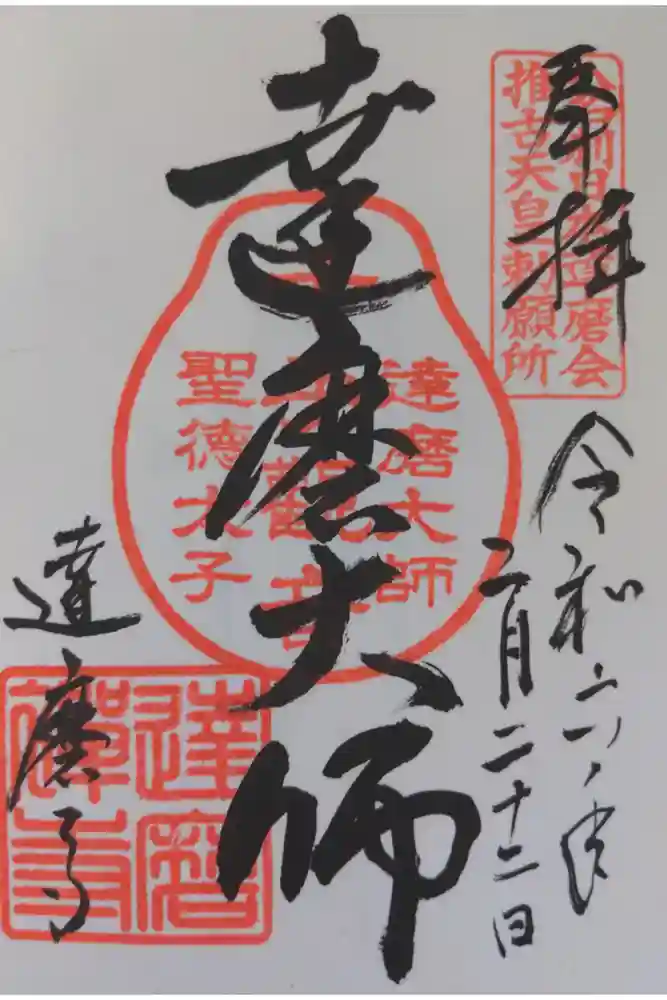 奉拝
推古天皇勅願所
令和六年
二月二十二日
達磨大師
達磨大師
聖徳太子
達磨寺
達磨禅寺